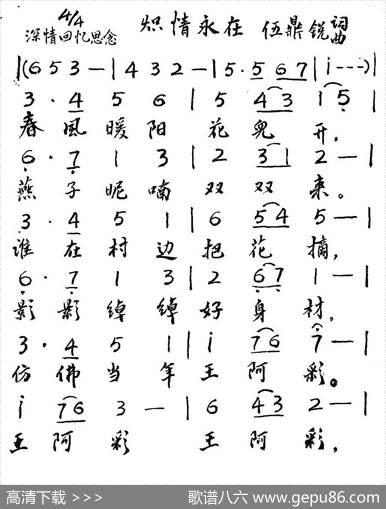 4/4
深情回忆思念 炽情永在 伍鼎锐 词曲
|(6 5 3 — | 4 3 2 — | 5 · 5 6 7 | i - - - ) |
3 · 4 5 6 | 5 4 3 1 5 |
春 風 暖 阳 花 兒 开,
6 · 7 1 3 | 2 3 1 2 — |
燕 子 呢 喃 双 双 来。
3 · 4 5 1 | 6 5 4 5 — |
谁 在 村 边 把 花 摘,
6 · 7 1 3 | 2 6 7 1 — |
影 影 绰 绰 好 身 材.
3 · 4 5 1 | i 7 6 7 — |
仿 佛 当 年 王 阿 彩。
i 7 6 3 — | 6 4 3 2 — |
王 阿 彩 王 阿 彩,
高清下载 >>> 歌谱八六 www.gepu86.com